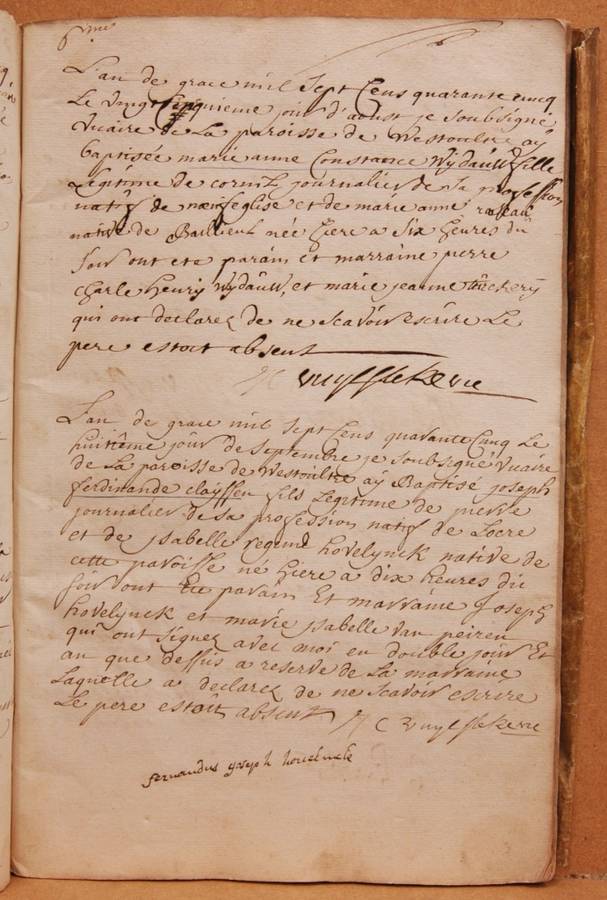 6me
L'an de grace mil sept Cens quarante cincq
Le vingt Cinquieme jour d'aoust je soubsigné
vicaire de La paroisse de Westoultre aÿ
baptisée marie anne Constance Wydäuw fille
Legitime de cornil journalier de sa profession
natif de neuf eglise et de marie anne
native de Bailleul née hiere a six heures du
soir ont ete parain et marraine pierre
Charle henry Wydäuw, et marie jeanne
qui ont declarez de ne scavoir escrire Le
pere estoit absent
vuylstekeere
L'an de grace mil sept Cens quarante Cinq Le
huitieme jour de septembre je soubsigné vicaire
de La paroisse de Westoultre aÿ Baptisé joseph
ferdinande clayssen fils Legitime de pierre
journalier de sa profession natif de Locre
et de jsabelle hovelynck native de
cette paroisse né hiere a dix heures du
soir ont Ete parain Et marraine Joseph
hovelynck et marie jsabelle van peiren
qui ont signez avec moi en double jour Et
an que dessus a reserve de La marraine
Laquelle a declarez de ne scavoir escrire
Le pere estoit absent J C vuylstekeere
fernandus joseph hovelinck